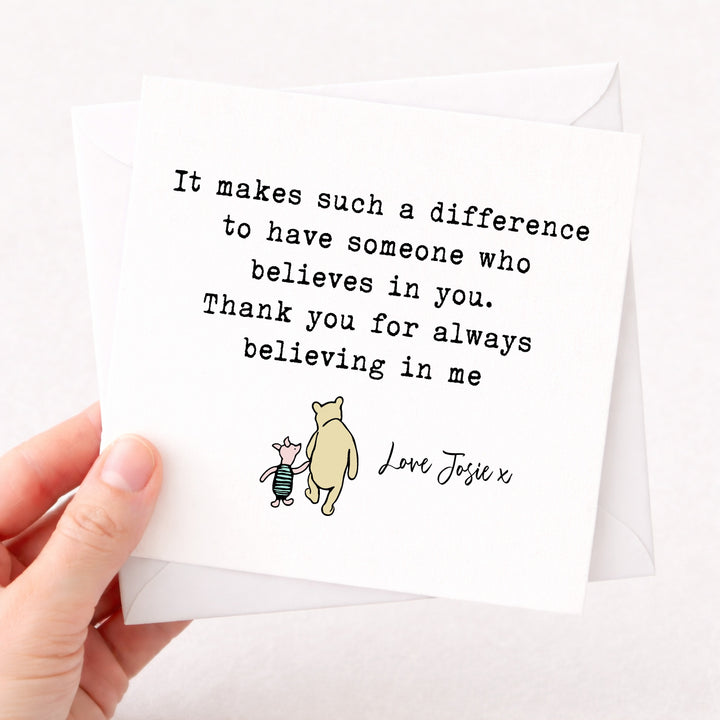 It makes such a difference
to have someone who
believes in you.
Thank you for always
believing in me
Love Josie x